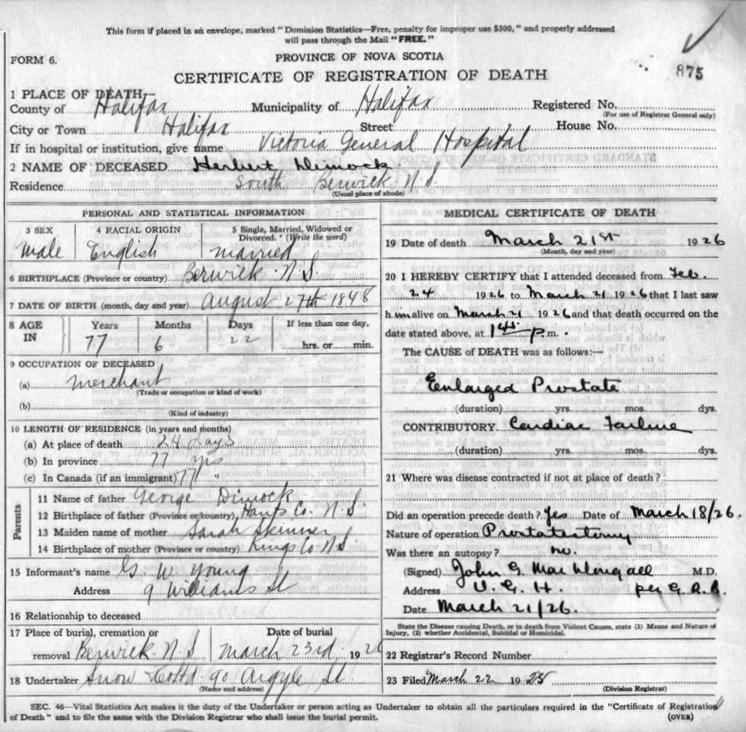 This form if placed in an envelope, marked "Dominion Statistics—Free, penalty for improper use $300," and properly addressed
will pass through the Mail "FREE."
FORM 6.
PROVINCE OF NOVA SCOTIA
CERTIFICATE OF REGISTRATION OF DEATH
875
1 PLACE OF DEATH
County of Halifax Municipality of Halifax Registered No.
(For use of Registrar General only)
City or Town Halifax Street House No.
If in hospital or institution, give name Victoria General Hospital
2 NAME OF DECEASED Herbert Dimock
Residence South Berwick N.S.
(Usual place of abode)
PERSONAL AND STATISTICAL INFORMATION
3 SEX 4 RACIAL ORIGIN 5 Single, Married, Widowed or Divorced. (Write the word)
Male English married
6 BIRTHPLACE (Province or country) Berwick N.S.
7 DATE OF BIRTH (month, day and year) August 27th 1848
8 AGE IN Years Months Days If less than one day,
77 6 22 hrs. or min.
9 OCCUPATION OF DECEASED
(a) merchant
(Trade or occupation or kind of work)
(b)
(Kind of industry)
10 LENGTH OF RESIDENCE (in years and months)
(a) At place of death 24 days
(b) In province 77 yrs
(c) In Canada (if an immigrant) 77 "
Parents
11 Name of father George Dimock
12 Birthplace of father (Province or country) Hants Co. N.S.
13 Maiden name of mother Sarah Skinner
14 Birthplace of mother (Province or country) Kings Co N.S.
15 Informant's name G. W. Young
Address 9 Williams St
16 Relationship to deceased
17 Place of burial, cremation or removal Berwick N.S Date of burial March 23rd 1926
18 Undertaker Snow & Co Ltd 90 Argyle St
(Name and address)
MEDICAL CERTIFICATE OF DEATH
19 Date of death March 21st 1926
(Month, day and year)
20 I HEREBY CERTIFY that I attended deceased from Feb.
24 1926 to March 21 1926 that I last saw
him alive on March 21 1926 and that death occurred on the
date stated above, at p.m.
The CAUSE of DEATH was as follows:—
Enlarged Prostate
(duration) yrs. mos. dys.
CONTRIBUTORY Cardiac Failure
(duration) yrs. mos. dys.
21 Where was disease contracted if not at place of death?
Did an operation precede death? Yes Date of March 18/26.
Nature of operation Prostatectomy
Was there an autopsy? no.
(Signed) John G. MacDougall M.D.
Address V. G. H. per G. A. B.
Date March 21/26.
State the Disease causing Death, or in death from Violent Causes, state (1) Means and Nature of
Injury, (2) whether Accidental, Suicidal or Homicidal.
22 Registrar's Record Number
23 Filed March 22 19
(Division Registrar)
SEC. 46—Vital Statistics Act makes it the duty of the Undertaker or person acting as Undertaker to obtain all the particulars required in the "Certificate of Registration
of Death" and to file the same with the Division Registrar who shall issue the burial permit.
(OVER)